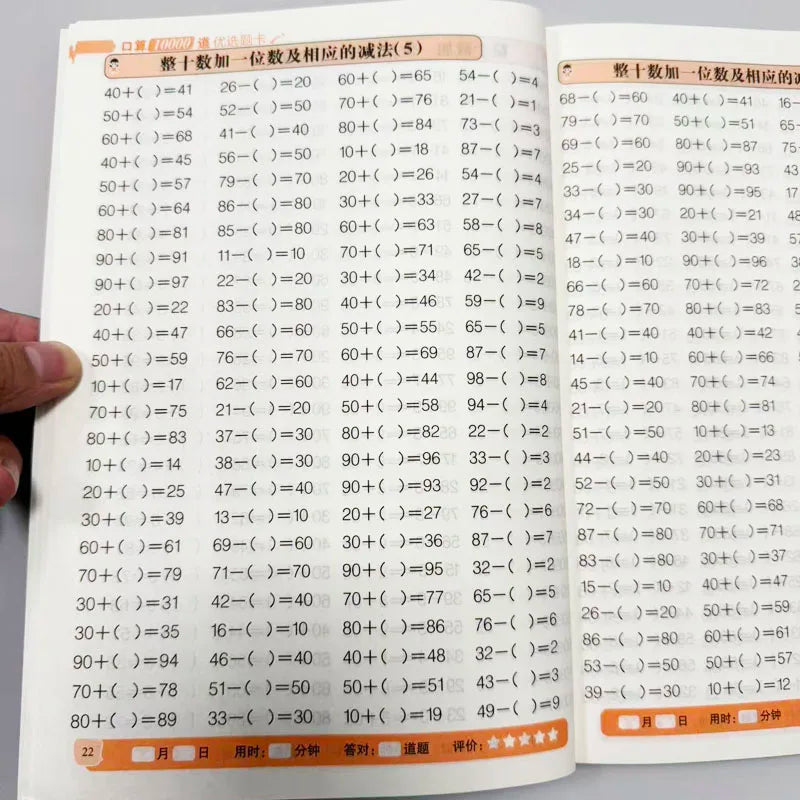 口算10000道优选题卡
整十数加一位数及相应的减法(5)
40+( )=41 26−( )=20 60+( )=65 54−( )=4
50+( )=54 52−( )=50 70+( )=76 21−( )=1
60+( )=68 41−( )=40 80+( )=84 73−( )=3
40+( )=45 56−( )=50 10+( )=18 87−( )=7
50+( )=57 79−( )=70 20+( )=26 54−( )=4
60+( )=64 86−( )=80 30+( )=33 27−( )=7
80+( )=81 85−( )=80 60+( )=63 58−( )=8
90+( )=91 11−( )=10 70+( )=71 65−( )=5
90+( )=97 22−( )=20 30+( )=34 42−( )=2
20+( )=22 83−( )=80 40+( )=46 59−( )=9
40+( )=47 66−( )=60 50+( )=55 65−( )=5
50+( )=59 76−( )=70 60+( )=69 87−( )=7
10+( )=17 62−( )=60 40+( )=44 98−( )=8
70+( )=75 21−( )=20 50+( )=58 94−( )=4
80+( )=83 37−( )=30 80+( )=82 22−( )=2
10+( )=14 38−( )=30 90+( )=96 33−( )=3
20+( )=25 47−( )=40 90+( )=93 92−( )=2
30+( )=39 13−( )=10 20+( )=27 76−( )=6
60+( )=61 69−( )=60 30+( )=36 87−( )=7
70+( )=79 71−( )=70 90+( )=95 32−( )=2
30+( )=31 42−( )=40 70+( )=77 65−( )=5
30+( )=35 16−( )=10 80+( )=86 76−( )=6
90+( )=94 46−( )=40 40+( )=48 32−( )=2
70+( )=78 51−( )=50 50+( )=51 43−( )=3
80+( )=89 33−( )=30 10+( )=19 49−( )=9
22 月 日 用时: 分钟 答对: 道题 评价:
整十数加一位数及相应的减
68−( )=60 40+( )=41 16−
79−( )=70 50+( )=51 65
69−( )=60 80+( )=87 75
25−( )=20 90+( )=93
33−( )=30 90+( )=95 17
34−( )=30 20+( )=21 48
47−( )=40 30+( )=39 57
18−( )=10 90+( )=96
66−( )=60 70+( )=72
78−( )=70 80+( )=83
41−( )=40 40+( )=42
14−( )=10 60+( )=66
45−( )=40 70+( )=74
21−( )=20 80+( )=81
51−( )=50 10+( )=13
44−( )=40 20+( )=23
52−( )=50 30+( )=31
72−( )=70 60+( )=68
87−( )=80 70+( )=71
83−( )=80 30+( )=37
15−( )=10 40+( )=47
26−( )=20 50+( )=59
86−( )=80 60+( )=61
53−( )=50 50+( )=57
39−( )=30 10+( )=12
月 日 用时: 分钟